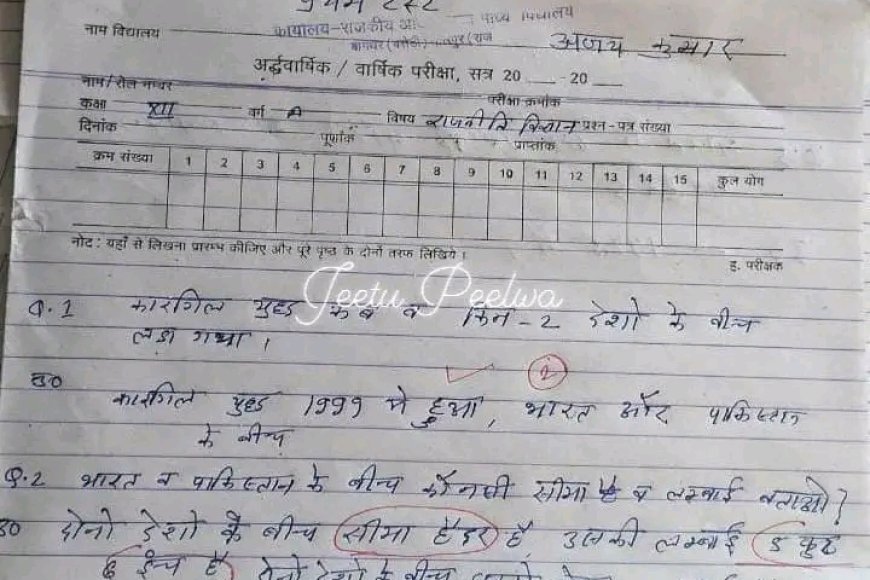 प्रथम टेस्ट
नाम विद्यालय कार्यालय-राजकीय आ
अजय कुमार
अर्द्धवार्षिक / वार्षिक परीक्षा, सत्र 20 ___ - 20 ___
नाम/रोल नम्बर परीक्षा क्रमांक
कक्षा XII वर्ग A विषय राजनीति विज्ञान प्रश्न-पत्र संख्या
दिनांक पूर्णांक प्राप्तांक
क्रम संख्या 1 2 3 4 5 6 7 8 9 10 11 12 13 14 15 कुल योग
नोट : यहाँ से लिखना प्रारम्भ कीजिए और पूरे पृष्ठ के दोनों तरफ लिखिये ।
ह. परीक्षक
Jeetu Peelwa
Q.1 कारगिल युद्ध कब व किन-2 देशो के बीच
लडा गया ।
उ० कारगिल युद्ध 1999 मे हुआ, भारत और पाकिस्तान
के बीच
2
Q.2 भारत व पाकिस्तान के बीच कौनसी सीमा है व लम्बाई बताओ?
उ० दोनो देशो के बीच सीमा हैदर है, उसकी लम्बाई 5 फुट
6 ईन्च है दोनो देशो के बीच